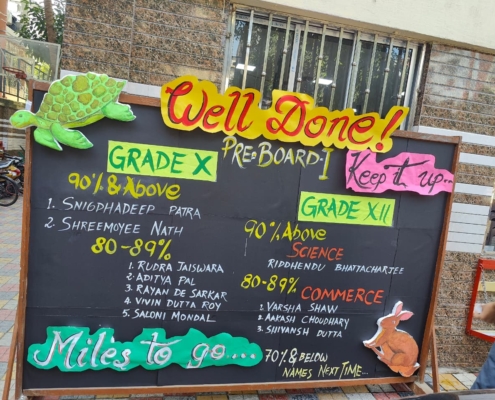 Well Done!
PRE-BOARD-I
Keep it up...
GRADE X
90% & Above
1. SNIGDHADEEP PATRA
2. SHREEMOYEE NATH
80-89%
1. RUDRA JAISWARA
2. ADITYA PAL
3. RAYAN DE SARKAR
4. VIVIN DUTTA ROY
5. SALONI MONDAL
GRADE XII
90% Above
SCIENCE
RIDDHENDU BHATTACHARJEE
80-89%
COMMERCE
1. VARSHA SHAW
2. AAKASH CHOUDHARY
3. SHIVANSH DUTTA
Miles to go...
70% & BELOW
NAMES NEXT TIME...